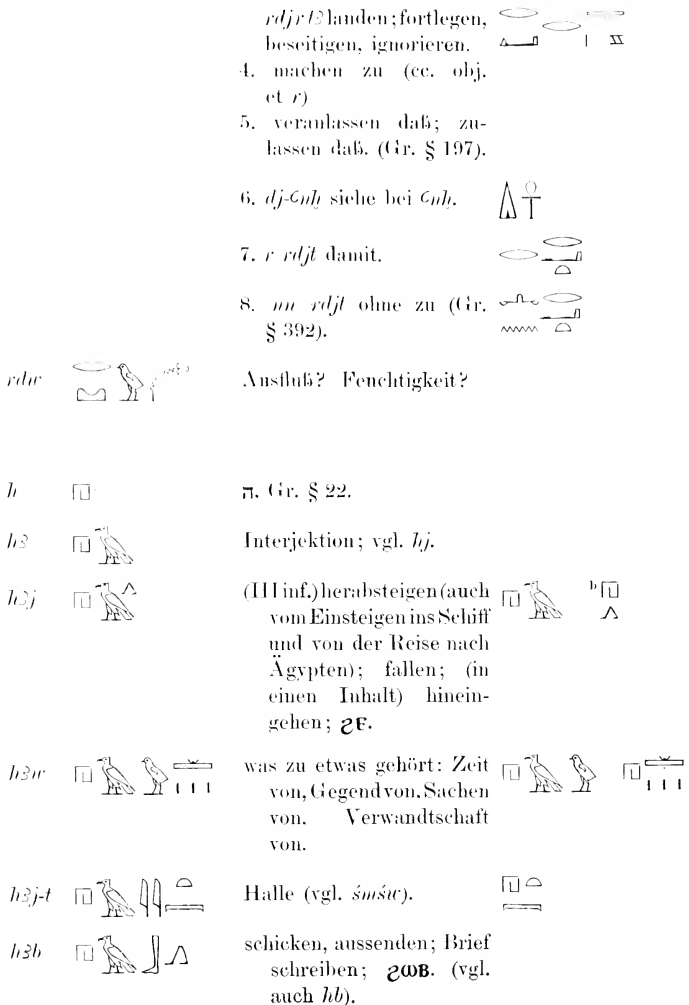 rdj r tꜣ landen; fortlegen,
beseitigen, ignorieren.
4. machen zu (cc. obj.
et r)
5. veranlassen daß; zu-
lassen daß. (Gr. § 197).
6. dj-ꜥnḫ siehe bei ꜥnḫ.
7. r rdjt damit.
8. nn rdjt ohne zu (Gr.
§ 392).
rdw Ausfluß? Feuchtigkeit?
h ה. Gr. § 22.
hꜣ Interjektion; vgl. hj.
hꜣj (III inf.) herabsteigen (auch
vom Einsteigen ins Schiff
und von der Reise nach
Ägypten); fallen; (in
einen Inhalt) hinein-
gehen; ϩⲉ.
hꜣw was zu etwas gehört: Zeit
von, Gegend von. Sachen
von. Verwandtschaft
von.
hꜣj-t Halle (vgl. śmśw).
hꜣb schicken, aussenden; Brief
schreiben; ϩⲱⲃ. (vgl.
auch hb).